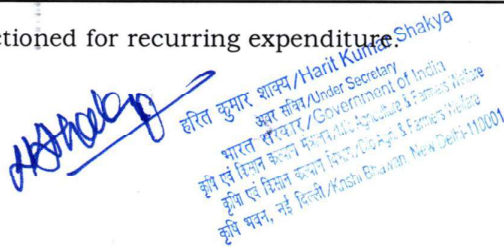 ctioned for recurring expenditure.
हरित कुमार शाक्य/Harit Kumar Shakya
अवर सचिव/Under Secretary
भारत सरकार/Government of India
कृषि एवं किसान कल्याण मंत्रालय/M/o Agriculture & Farmers Welfare
कृषि एवं किसान कल्याण विभाग/D/o Agri. & Farmers Welfare
कृषि भवन, नई दिल्ली/Krishi Bhawan, New Delhi-110001